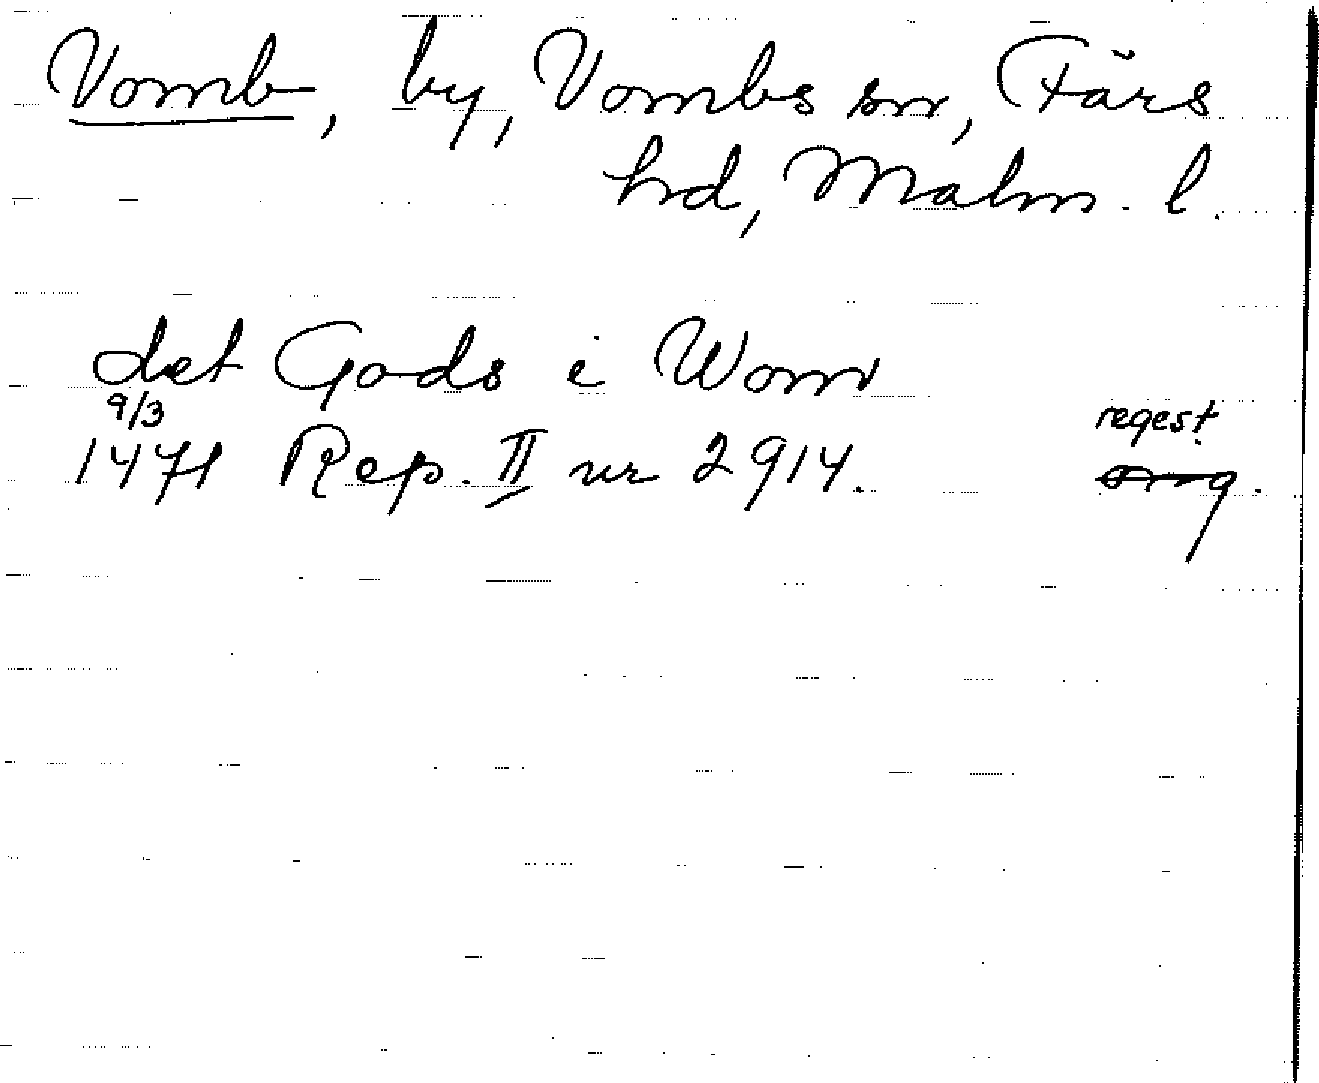 Vomb, by, Vombs sn, Färs
hd, Malm. l.
det Gods i Wom
9/3
regest
1471 Rep. II nr 2914.